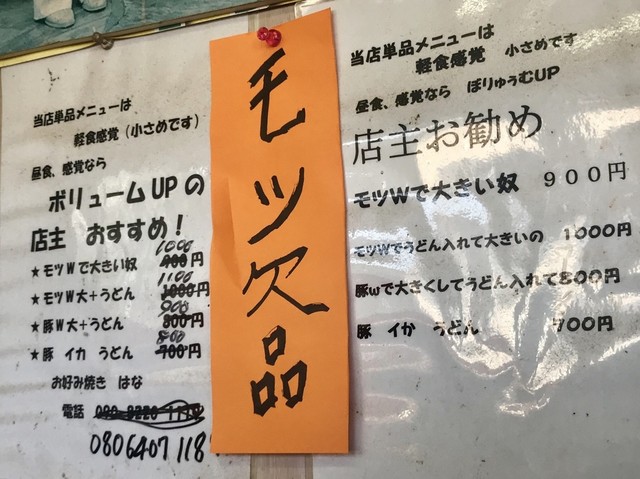 当店単品メニューは
軽食感覚（小さめです）
昼食、感覚なら
ボリュームUPの
店主 おすすめ！
1000
★モツWで大きい奴 900円
1100
★モツW大＋うどん 1000円
900
★豚W大＋うどん 800円
800
★豚 イカ うどん 700円
お好み焼き はな
電話
0806407118
モツ欠品
当店単品メニューは
軽食感覚 小さめです
昼食、感覚なら ぼりゅうむUP
店主お勧め
モツWで大きい奴 900円
モツWでうどん入れて大きいの 1000円
豚wで大きくしてうどん入れて800円
豚 イか うどん 700円